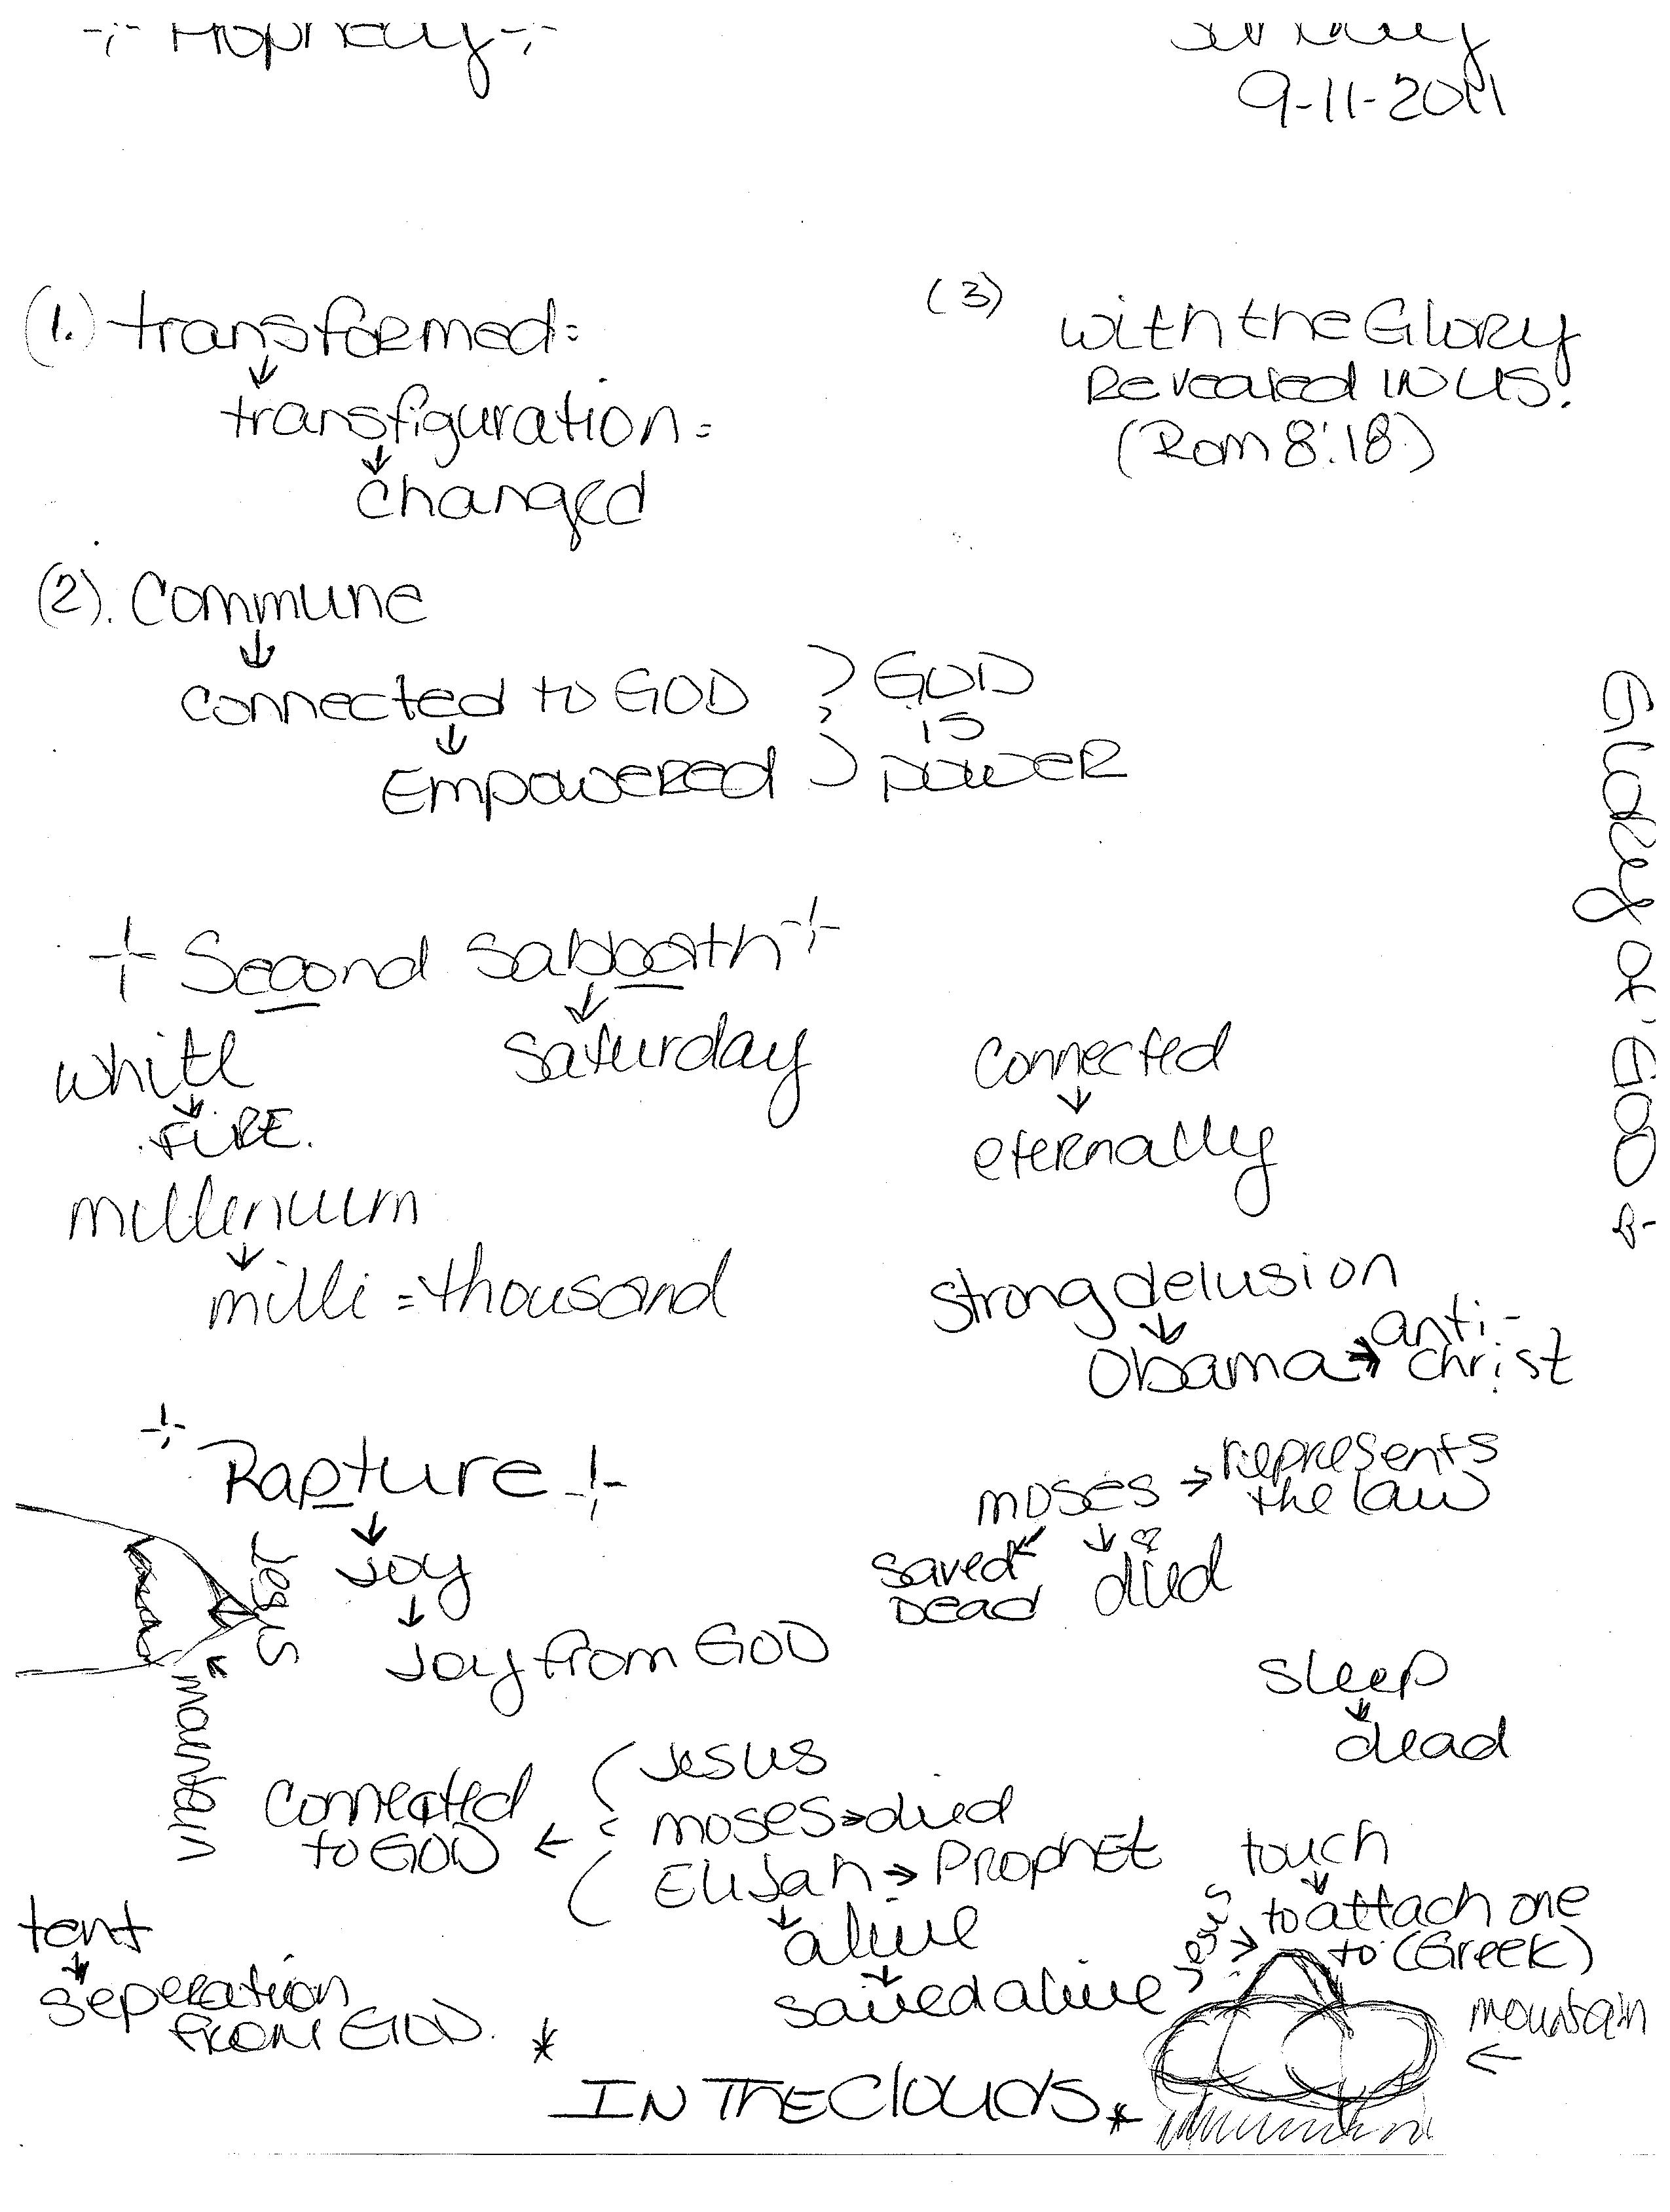 9-11-2011
(1.) transformed =
↓
transfiguration =
↓
changed
(3) with the Glory
Revealed IN US.
(Rom 8:18)
(2). Commune
↓
connected to GOD
↓
Empowered
GOD
is
power
Glory of GOD
Second Sabbath
↓
Saturday
white
↓
FIRE.
millenuum
↓
milli = thousand
connected
↓
eternally
strong delusion
↓
Obama → anti-
christ
Rapture
↓
Joy
↓
Joy from GOD
Jesus
mountain
moses → represents
the law
saved
Dead
↓
died
sleep
↓
dead
connected
to GOD ←
Jesus
moses → died
Elijah → Prophet
↓
alive
↓
saved alive
touch
↓
to attach one
to (Greek)
Jesus
mountain
←
tent
↓
seperation
from GOD.
* IN THE Clouds *